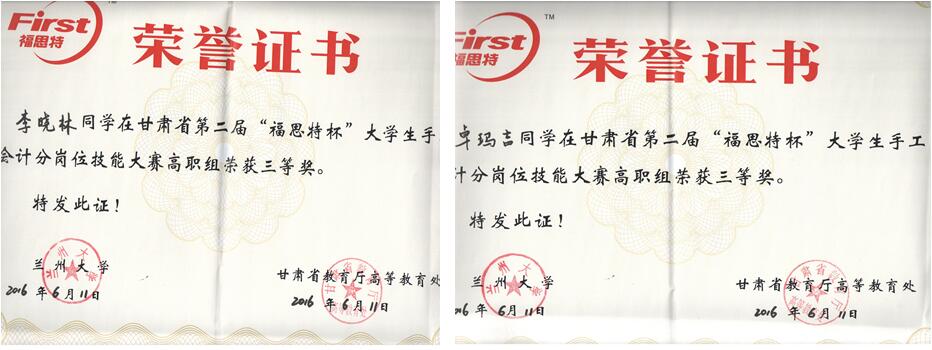 First
福思特
荣誉证书
李晓林同学在甘肃省第二届“福思特杯”大学生手
会计分岗位技能大赛高职组荣获三等奖。
特发此证！
兰州大学
2016年6月11日
甘肃省教育厅高等教育处
2016年6月11日
First
TM
福思特
荣誉证书
卓玛吉同学在甘肃省第二届“福思特杯”大学生手工
计分岗位技能大赛高职组荣获三等奖。
特发此证！
兰州大学
2016年6月11日
甘肃省教育厅高等教育处
2016年6月11日